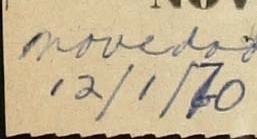 NOV
movedad
12/1/70